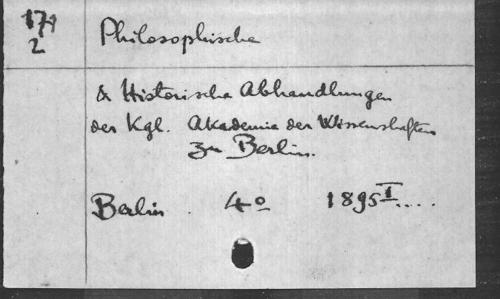 174
2
Philosophische
& Historische Abhandlungen
der Kgl. Akademie der Wissenshaften
zu Berlin.
Berlin. 4° 1895 I....